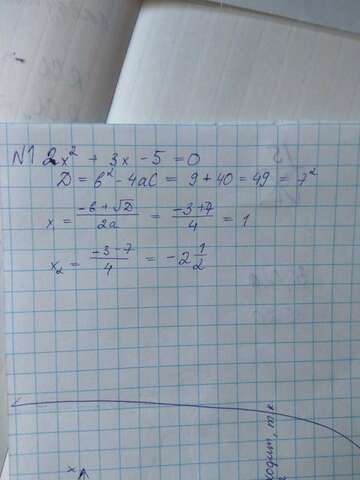 N1 2x² + 3x - 5 = 0
D = b² - 4ac = 9 + 40 = 49 = 7²
x₁ = (-b + √D)/2a = (-3+7)/4 = 1
x₂ = (-3-7)/4 = -2 1/2
x
ходит, т/к